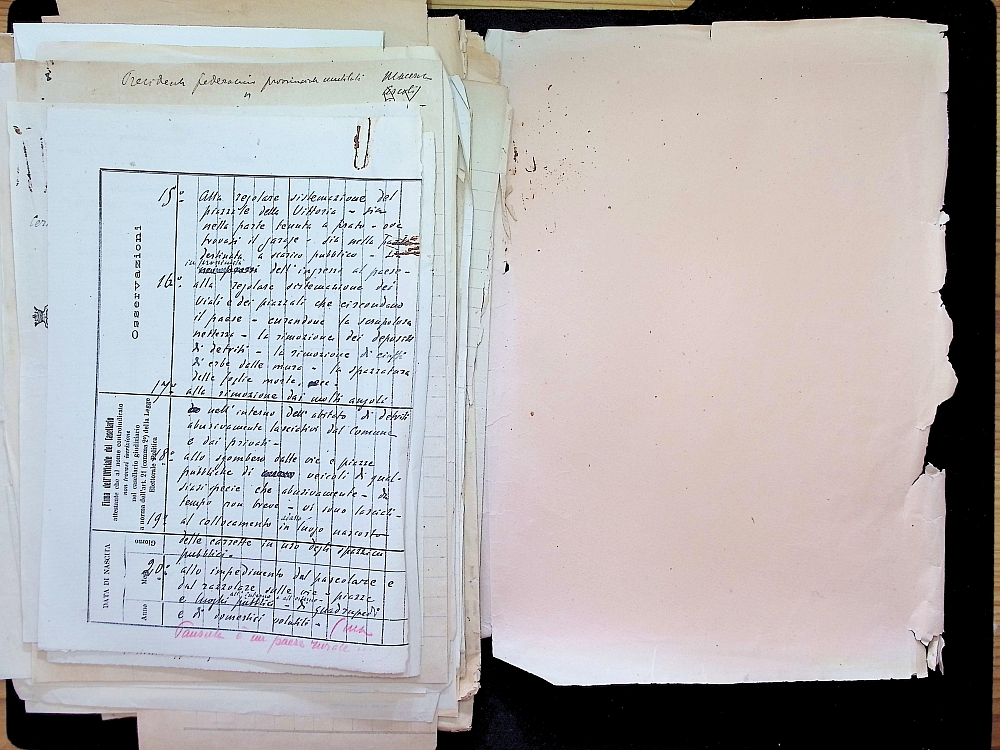 Presidente federazione provinciale mutilati Macerata
(Ascoli)
15º- Alla regolare sistemazione del
piazzale della Vittoria - sia
nella parte tenuta a prato - ove
trovasi il garage - sia nella
destinata a scarico pubblico -
in prossimità
dell'ingresso al paese -
16º- alla regolare sistemazione dei
viali e dei piazzali che circondano
il paese - curandone la scrupolosa
nettezza - la rimozione dei depositi
di detriti - la rimozione di ciuffi
di erbe dalle mura - la spazzatura
delle foglie morte, ecc -
17º- alla rimozione dai molti angoli
nell'interno dell'abitato di detriti
abusivamente lasciativi dal Comune
e dai privati -
18º- allo sgombero dalle vie e piazze
pubbliche di veicoli di qual-
siasi specie che abusivamente - da
tempo non breve - vi sono lasciati -
19º- al collocamento in luogo nascosto
delle carrette in uso degli spazzini
pubblici -
20º- allo impedimento del pascolare e
del razzolare sulle vie - piazze
e luoghi pubblici - di quadrupedi
e di domestici volatili -
Pausula è un paese rurale ...
Osservazioni
Firma dell'Ufficiale del Casellario
attestante che al nome controindicato
non trovasi iscrizione
nel casellario giudiziario
a norma dell'art. 21 (comma 2º) della Legge
Elettorale Politica
DATA DI NASCITA
Giorno
Mese
Anno